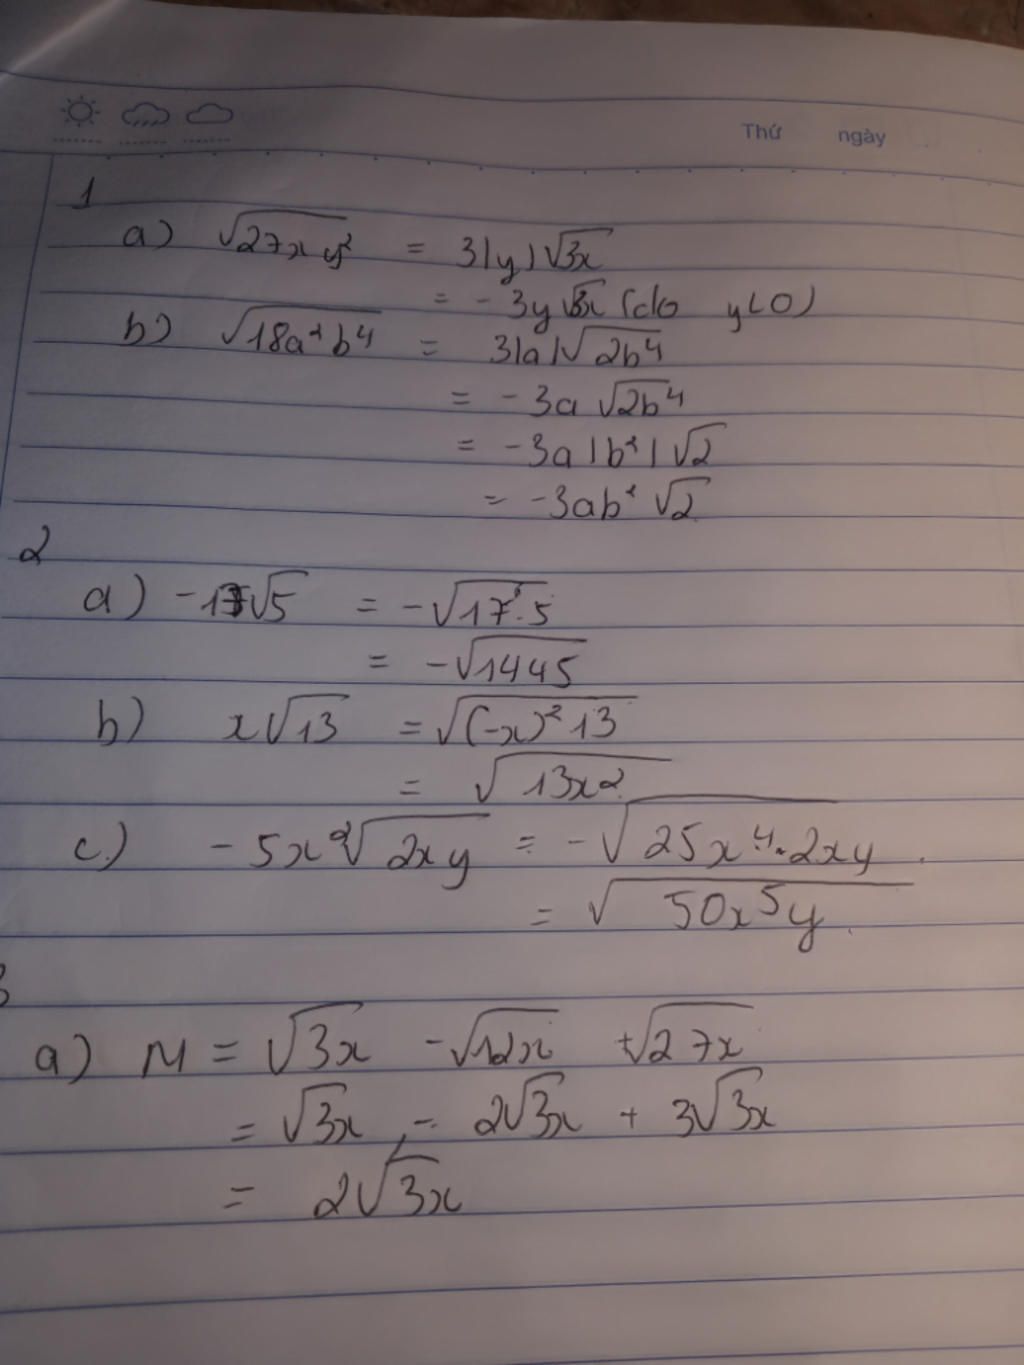 Thứ ngày
1
a) √27xy² = 3|y|√3x
= - 3y√3x (do y<0)
b) √18a²b⁴ = 3|a|√2b⁴
= - 3a √2b⁴
= -3a|b²|√2
= -3ab²√2
2
a) -17√5 = -√17².5
= -√1445
b) x√13 = √(-x)²13
= √13x2
c.) - 5x²√2xy = -√25x⁴.2xy
= √50x⁵y
3
a) M = √3x -√12x +√27x
= √3x - 2√3x + 3√3x
= 2√3x